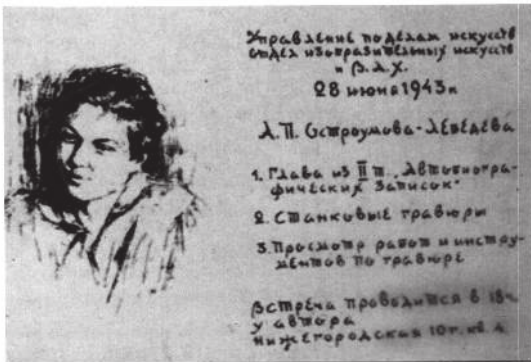 Управление по делам искусств
отдел изобразительных искусств
и В.А.Х.
28 июня 1943 г.
А.П. Остроумова-Лебедева
1. Глава из II т. „Автобиогра-
фических Записок“
2. Станковые гравюры
3. Просмотр работ и инстру-
ментов по гравюре
Встреча проводится в 18ч.
у автора
Нижегородская 10 г. кв. 4.